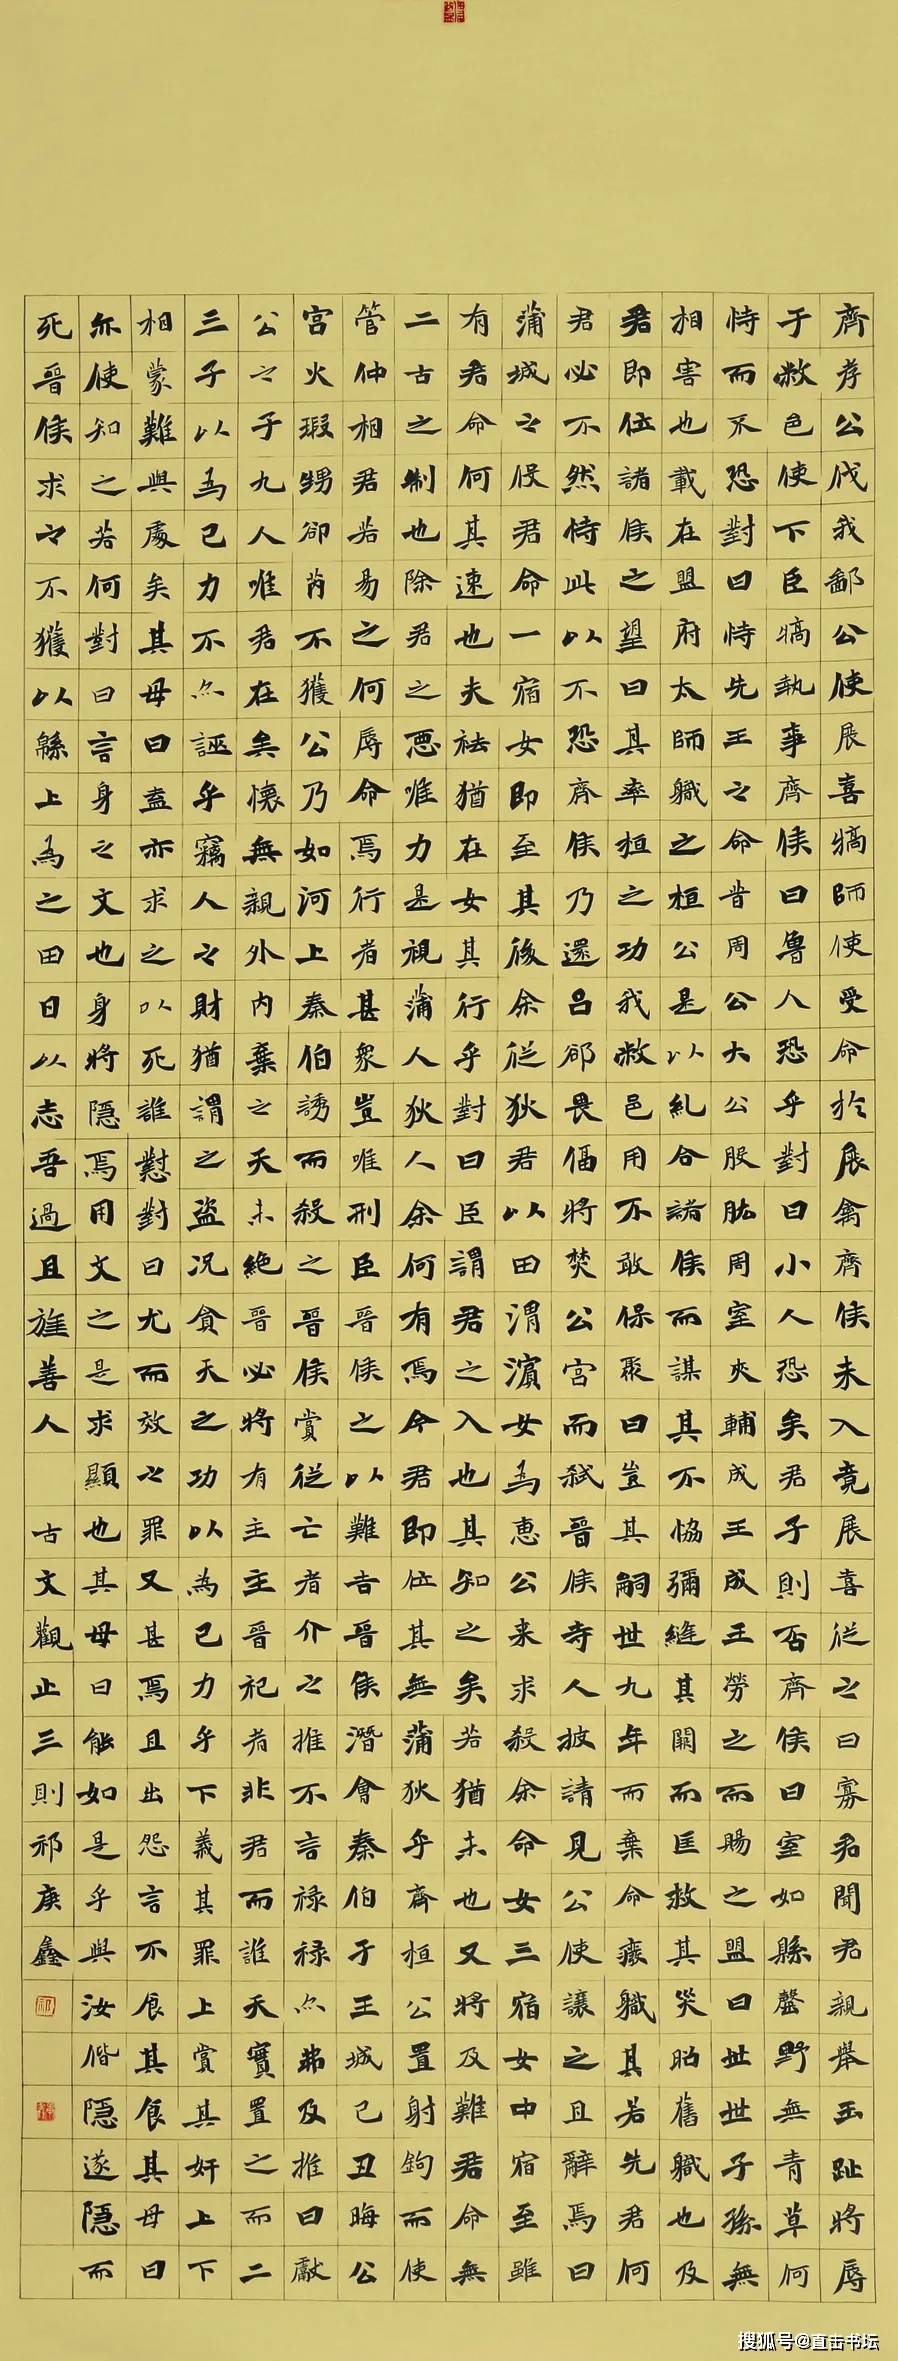 齊孝公伐我鄙公使展喜犒師使受命於展禽齊侯未入竟展喜從之曰寡君聞君親舉玉趾將辱
于敝邑使下臣犒執事齊侯曰魯人恐乎對曰小人恐矣君子則否齊侯曰室如縣罄野無青草何
恃而不恐對曰恃先王之命昔周公大公股肱周室夾輔成王成王勞之而賜之盟曰世世子孫無
相害也載在盟府太師職之桓公是以糺合諸侯而謀其不恊彌縫其闕而匡救其災昭舊職也及
君即位諸侯之望曰其率桓之功我敝邑用不敢保聚曰豈其嗣世九年而棄命癈職其若先君何
君必不然恃此以不恐齊侯乃還呂郤畏偪將焚公宮而弒晉侯寺人披請見公使讓之且辭焉曰
蒲城之役君命一宿女即至其後余從狄君以田渭濱女為惠公來求殺余命女三宿女中宿至雖
有君命何其速也夫袪猶在女其行乎對曰臣謂君之入也其知之矣若猶未也又將及難君命無
二古之制也除君之惡唯力是視蒲人狄人余何有焉今君即位其無蒲狄乎齊桓公置射鉤而使
管仲相君若易之何辱命焉行者甚衆豈唯刑臣晉侯之以難告晉侯潛會秦伯于王城己丑晦公
宮火瑕甥郤芮不獲公乃如河上秦伯誘而殺之晉侯賞從亡者介之推不言祿祿亦弗及推曰獻
公之子九人唯君在矣懷無親外內棄之天未絕晉必將有主主晉祀者非君而誰天實置之而二
三子以為己力不亦誣乎竊人之財猶謂之盜況貪天之功以為己力乎下義其罪上賞其奸上下
相蒙難與處矣其母曰盍亦求之以死誰懟對曰尤而效之罪又甚焉且出怨言不食其食其母曰
亦使知之若何對曰言身之文也身將隱焉用文之是求顯也其母曰能如是乎與汝偕隱遂隱而
死晉侯求之不獲以緜上為之田曰以志吾過且旌善人 古文觀止三則祁庚鑫
搜狐号@直击书坛